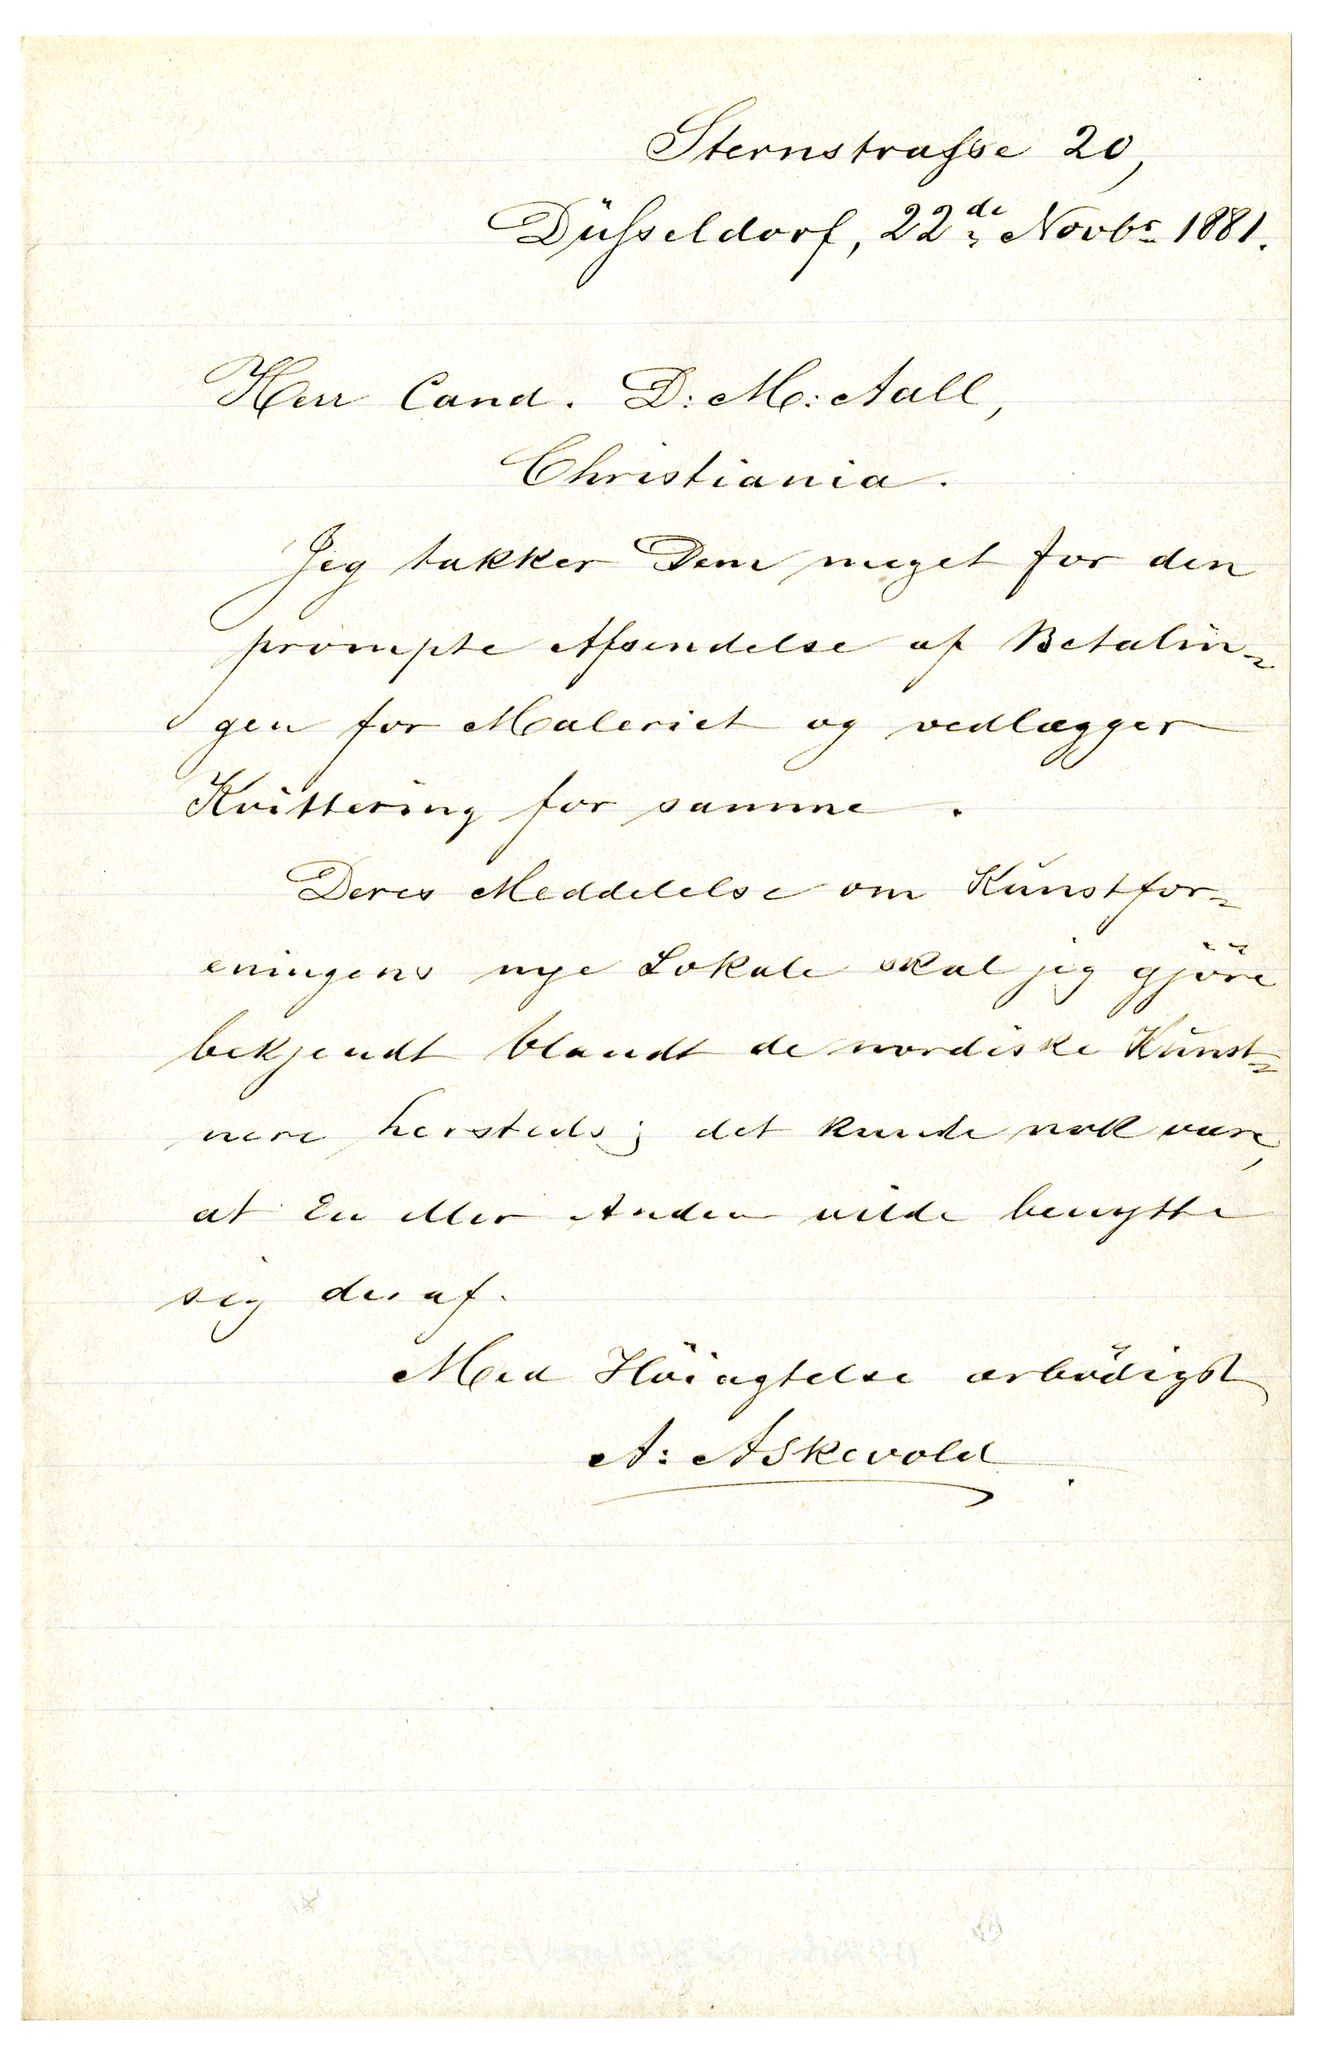 Sternstrasse 20,
Düsseldorf, 22de Novbr 1881.
Herr Cand. D: M: Aall,
Christiania.
Jeg takker Dem meget for den
prompte Afsendelse af Betalin-
gen for Maleriet og vedlægger
Kvittering for samme.
Deres Meddelelse om Kunstfor-
eningens nye Lokale skal jeg gjöre
bekjendt blandt de nordiske Kunst-
nere hersteds; det kunde nok være,
at En eller Anden vilde benytte
sig deraf.
Med Höiagtelse ærbödigst
A: Askevold.